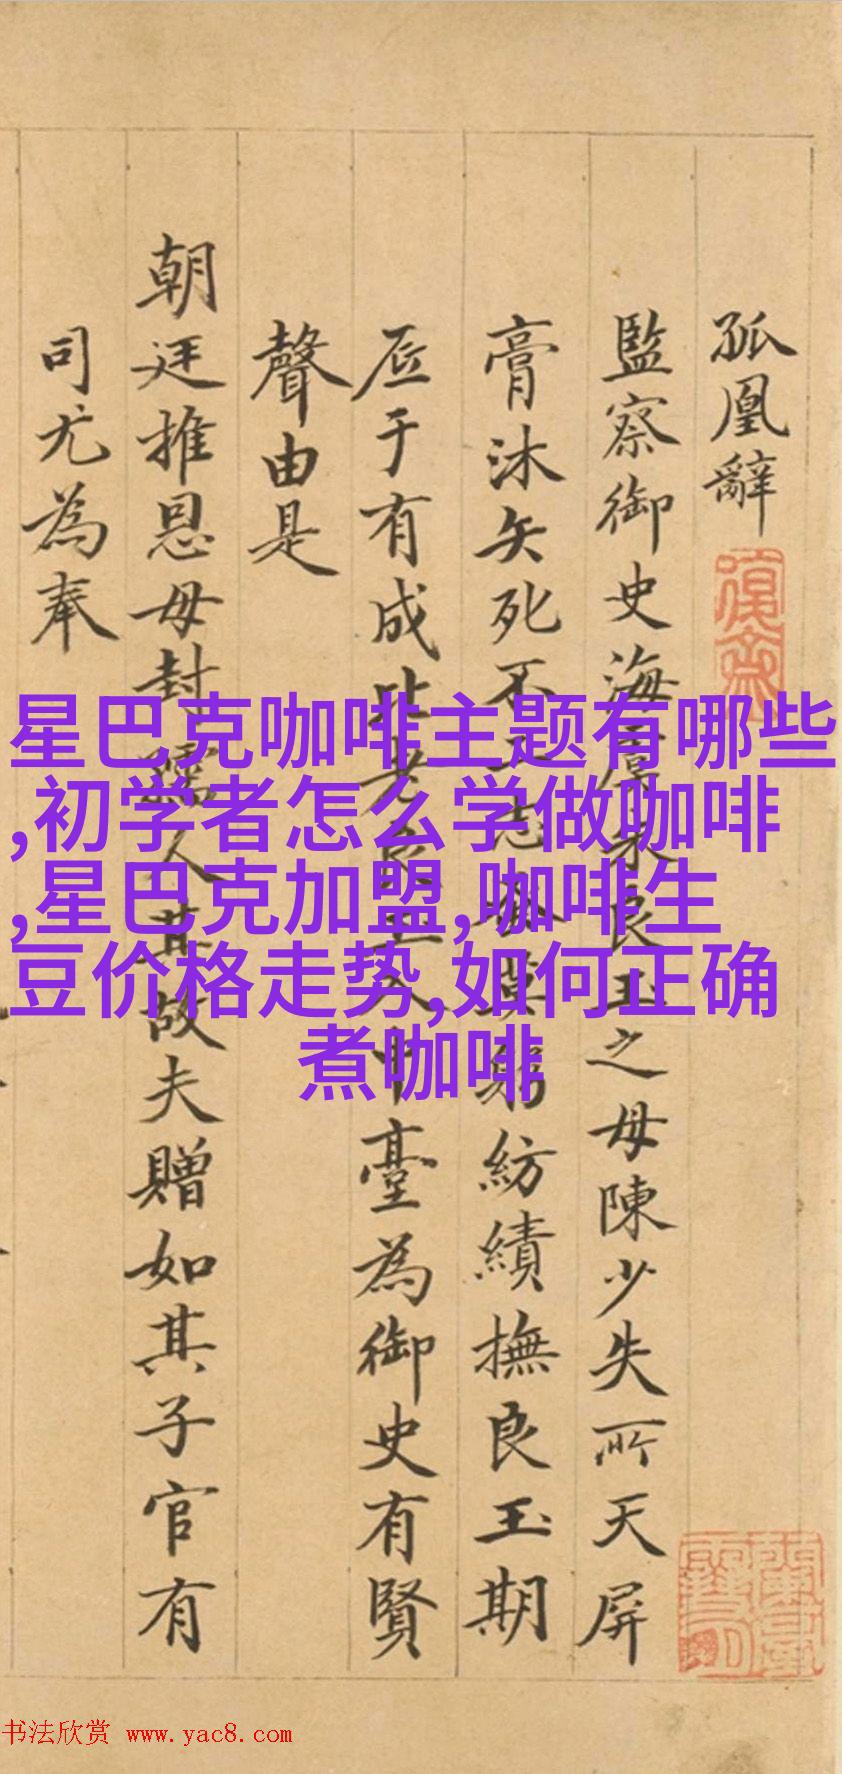 孤凰辭
監察御史海虞良玉之母陳少失所天屏
膏沐矢死不志躬紡績撫良玉期
底于有成比老良玉入中臺為御史有賢
聲由是
朝廷推恩母封孺人其故夫贈如其子官有
司尤為奉
星巴克咖啡主题有哪些
,初学者怎么学做咖啡
,星巴克加盟,咖啡生
豆价格走势,如何正确
煮咖啡
书法欣赏 www.yac8.com